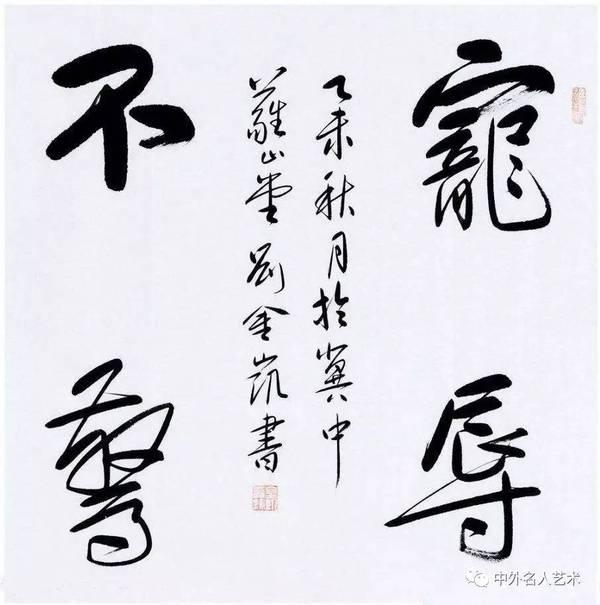 寵辱
乙未秋月於冀中
山堂劉金凱書
不驚
中外名人艺术